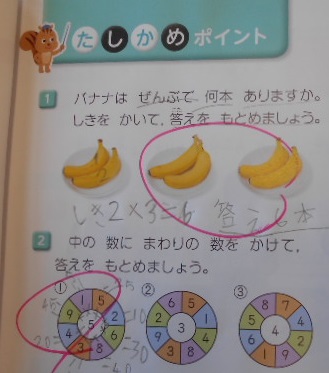 たしかめポイント
1 バナナは ぜんぶで 何本 ありますか。
しきを かいて、答えを もとめましょう。
しき 2×3=6 答え 6本
2 中の 数に まわりの 数を かけて、
答えを もとめましょう。
① ② ③
1 5 2 6 8 3 4 9 5
6 5 1 2 8 3 9 4 3
8 7 4 2 9 1 6 5 4